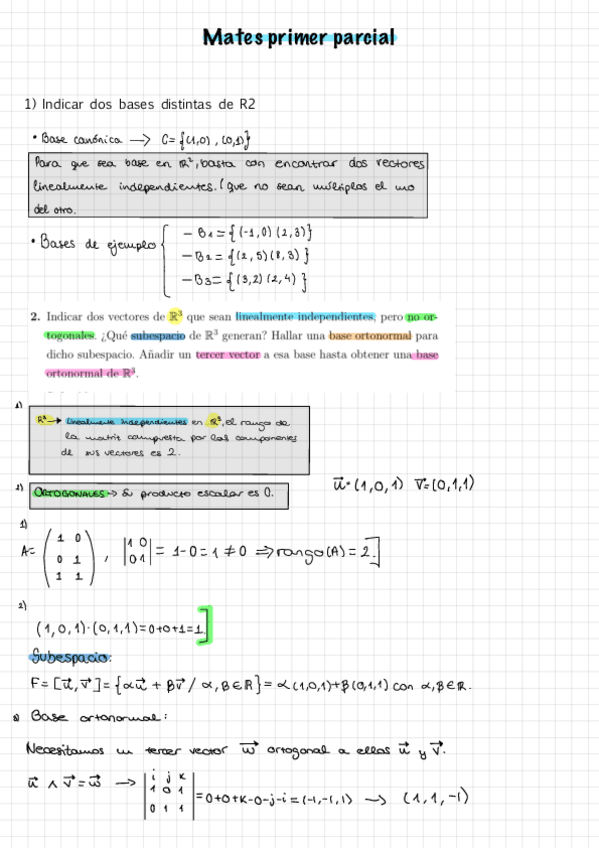 Mates primer parcial
1) Indicar dos bases distintas de R2
• Base canónica → C = {(1,0), (0,1)}
Para que sea base en ℝ², basta con encontrar dos vectores
linealmente independientes. (que no sean múltiplos el uno
del otro.
• Bases de ejemplo
- B1 = {(-1,0) (2,3)}
- B2 = {(2,5) (8,3)}
- B3 = {(3,2) (2,4)}
2. Indicar dos vectores de ℝ³ que sean linealmente independientes, pero no or-
togonales. ¿Qué subespacio de ℝ³ generan? Hallar una base ortonormal para
dicho subespacio. Añadir un tercer vector a esa base hasta obtener una base
ortonormal de ℝ³.
1)
ℝ³ → Linealmente independientes en ℝ³, el rango de
la matriz compuesta por las componentes
de sus vectores es 2.
2)
ORTOGONALES → Su producto escalar es 0.
u⃗ = (1,0,1) v⃗ = (0,1,1)
1)
A = (1 0
0 1
1 1) , |1 0
0 1| = 1-0 = 1 ≠ 0 ⇒ rango(A) = 2.]
2)
(1,0,1)·(0,1,1) = 0+0+1 = 1.]
Subespacio:
F = [u⃗, v⃗] = {αu⃗ + βv⃗ / α, β ∈ ℝ} = α(1,0,1)+β(0,1,1) con α, β ∈ ℝ.
Base ortonormal:
Necesitamos un tercer vector w⃗ ortogonal a ellos u⃗ y v⃗.
u⃗ ∧ v⃗ = w⃗ → |i j k
1 0 1
0 1 1| = 0+0+k-0-j-i = (-1,-1,1) → (1,1,-1)